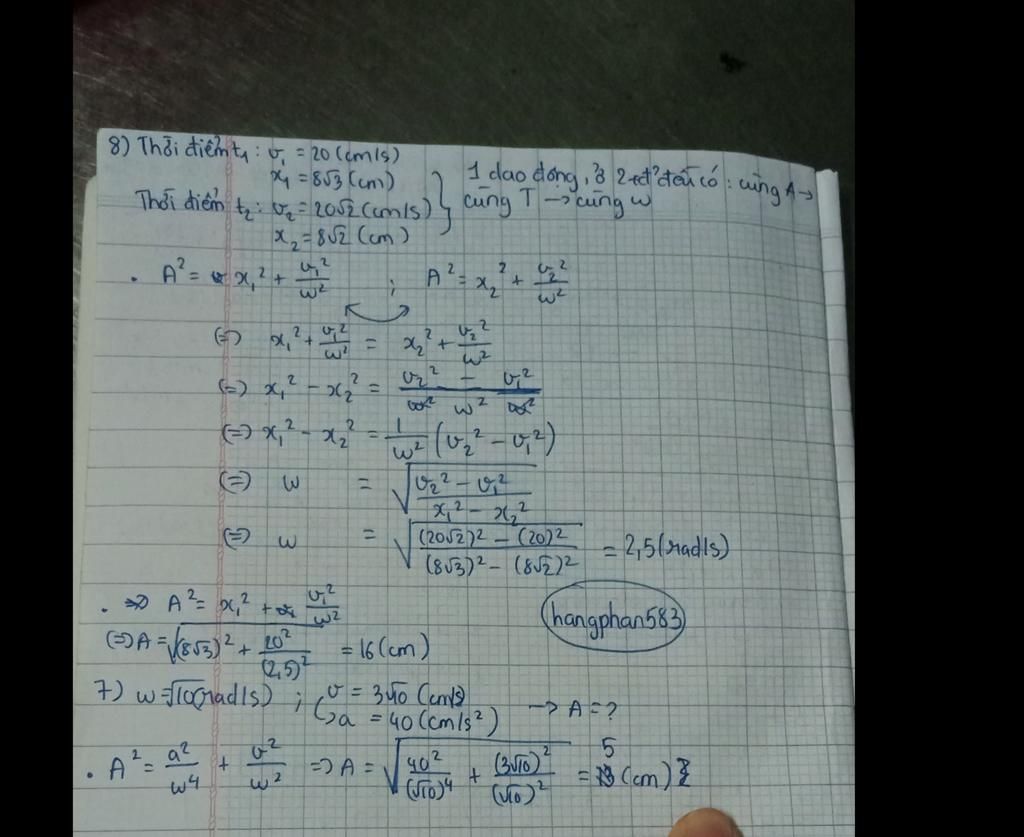 8) Thời điểm t₁ : v₁ = 20 (cm/s)
x₁ = 8√3 (cm)
Thời điểm t₂ : v₂ = 20√2 (cm/s)
x₂ = 8√2 (cm)
1 dao động, ở 2 tđ' đều có : cùng A →
cùng T → cùng ω
. A² = x₁² + v₁²/ω² ; A² = x₂² + v₂²/ω²
(=) x₁² + v₁²/ω² = x₂² + v₂²/ω²
(=) x₁² - x₂² = (v₂² - v₁²)/ω²
(=) x₁² - x₂² = 1/ω² (v₂² - v₁²)
(=) ω = √((v₂² - v₁²)/(x₁² - x₂²))
(=) ω = √(((20√2)² - (20)²)/((8√3)² - (8√2)²)) = 2,5 (rad/s)
. => A² = x₁² + v₁²/ω²
(=) A = √((8√3)² + 20²/(2,5)²) = 16 (cm)
hangphan583
7) ω = √10 (rad/s) ; v = 3√10 (cm/s)
↳ a = 40 (cm/s²) → A = ?
. A² = a²/ω⁴ + v²/ω² => A = √(40²/(√10)⁴ + (3√10)²/(√10)²) = 5 (cm)